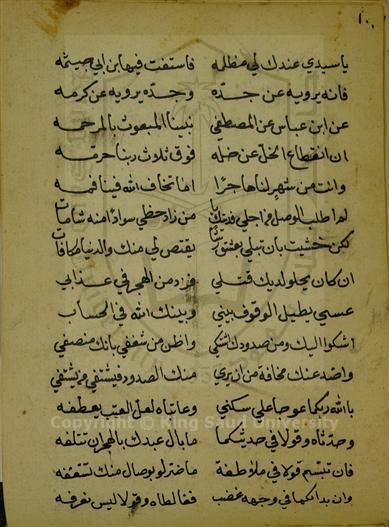 ١٠
يا سيدي عندك لي مظلمه فاستفت فيها ابن ابي خيثمه
فانه يرويه عن جده وجده يرويه عن عكرمه
عن ابن عباس عن المصطفى نبينا المبعوث بالمرحمه
ان انقطاع الخل عن خله فوق ثلاث ربنا حرمه
وانت من شهر لنا هاجرا اما تخاف الله فينا فمه
لم اطلب الوصل من اجلي فديتك يا من زاد حظي سوادا منه شامات
لكن خشيت بان تبلى بعشق رشا يقتص لي منك والدنيا مكافات
ان كان يحلو لديك قتلي فزد من الهجر في عذابي
عسى يطيل الوقوف بيني وبينك الله في الحساب
اشكوا اليك ومن صدودك اشتكي واظن من شغفي بانك منصفي
واصد عنك مخافة من ان يرى منك الصدود فيشتفي من يشتفي
بالله ربكما عوجا على سكني وعاتباه لعل العتب يعطفه
وحدثاه وقولا في حديثكما ما بال عبدك بالهجران تتلفه
فان تبسم قولا في ملاطفة ما ضر لو بوصال منك تسعفه
وان بدا لكما في وجهه غضب فغالطاه وقولا ليس نعرفه
Copyright © King Saud University